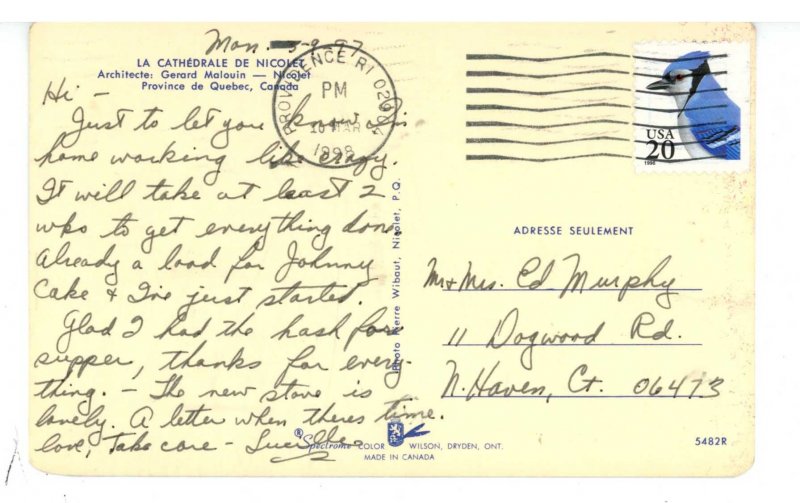 Mon. 3-9-97
LA CATHÉDRALE DE NICOLET
Architecte: Gerard Malouin — Nicolet
Province de Quebec, Canada
PROVIDENCE RI 02904
PM
10 MAR
1998
USA
20
1996
Hi -
Just to let you know I'm
home working like crazy.
It will take at least 2
wks to get everything done.
Already a load for Johnny
Cake & I've just started.
Glad I had the hash for
supper, thanks for every-
thing. - The new stove is
lovely. A letter when theres time.
love, Take care - Lucille
Photo Pierre Wibaut, Nicolet, P.Q.
ADRESSE SEULEMENT
Mr & Mrs. Ed Murphy
11 Dogwood Rd.
N. Haven, Ct. 06473
Spectrome COLOR WILSON, DRYDEN, ONT.
MADE IN CANADA
5482R